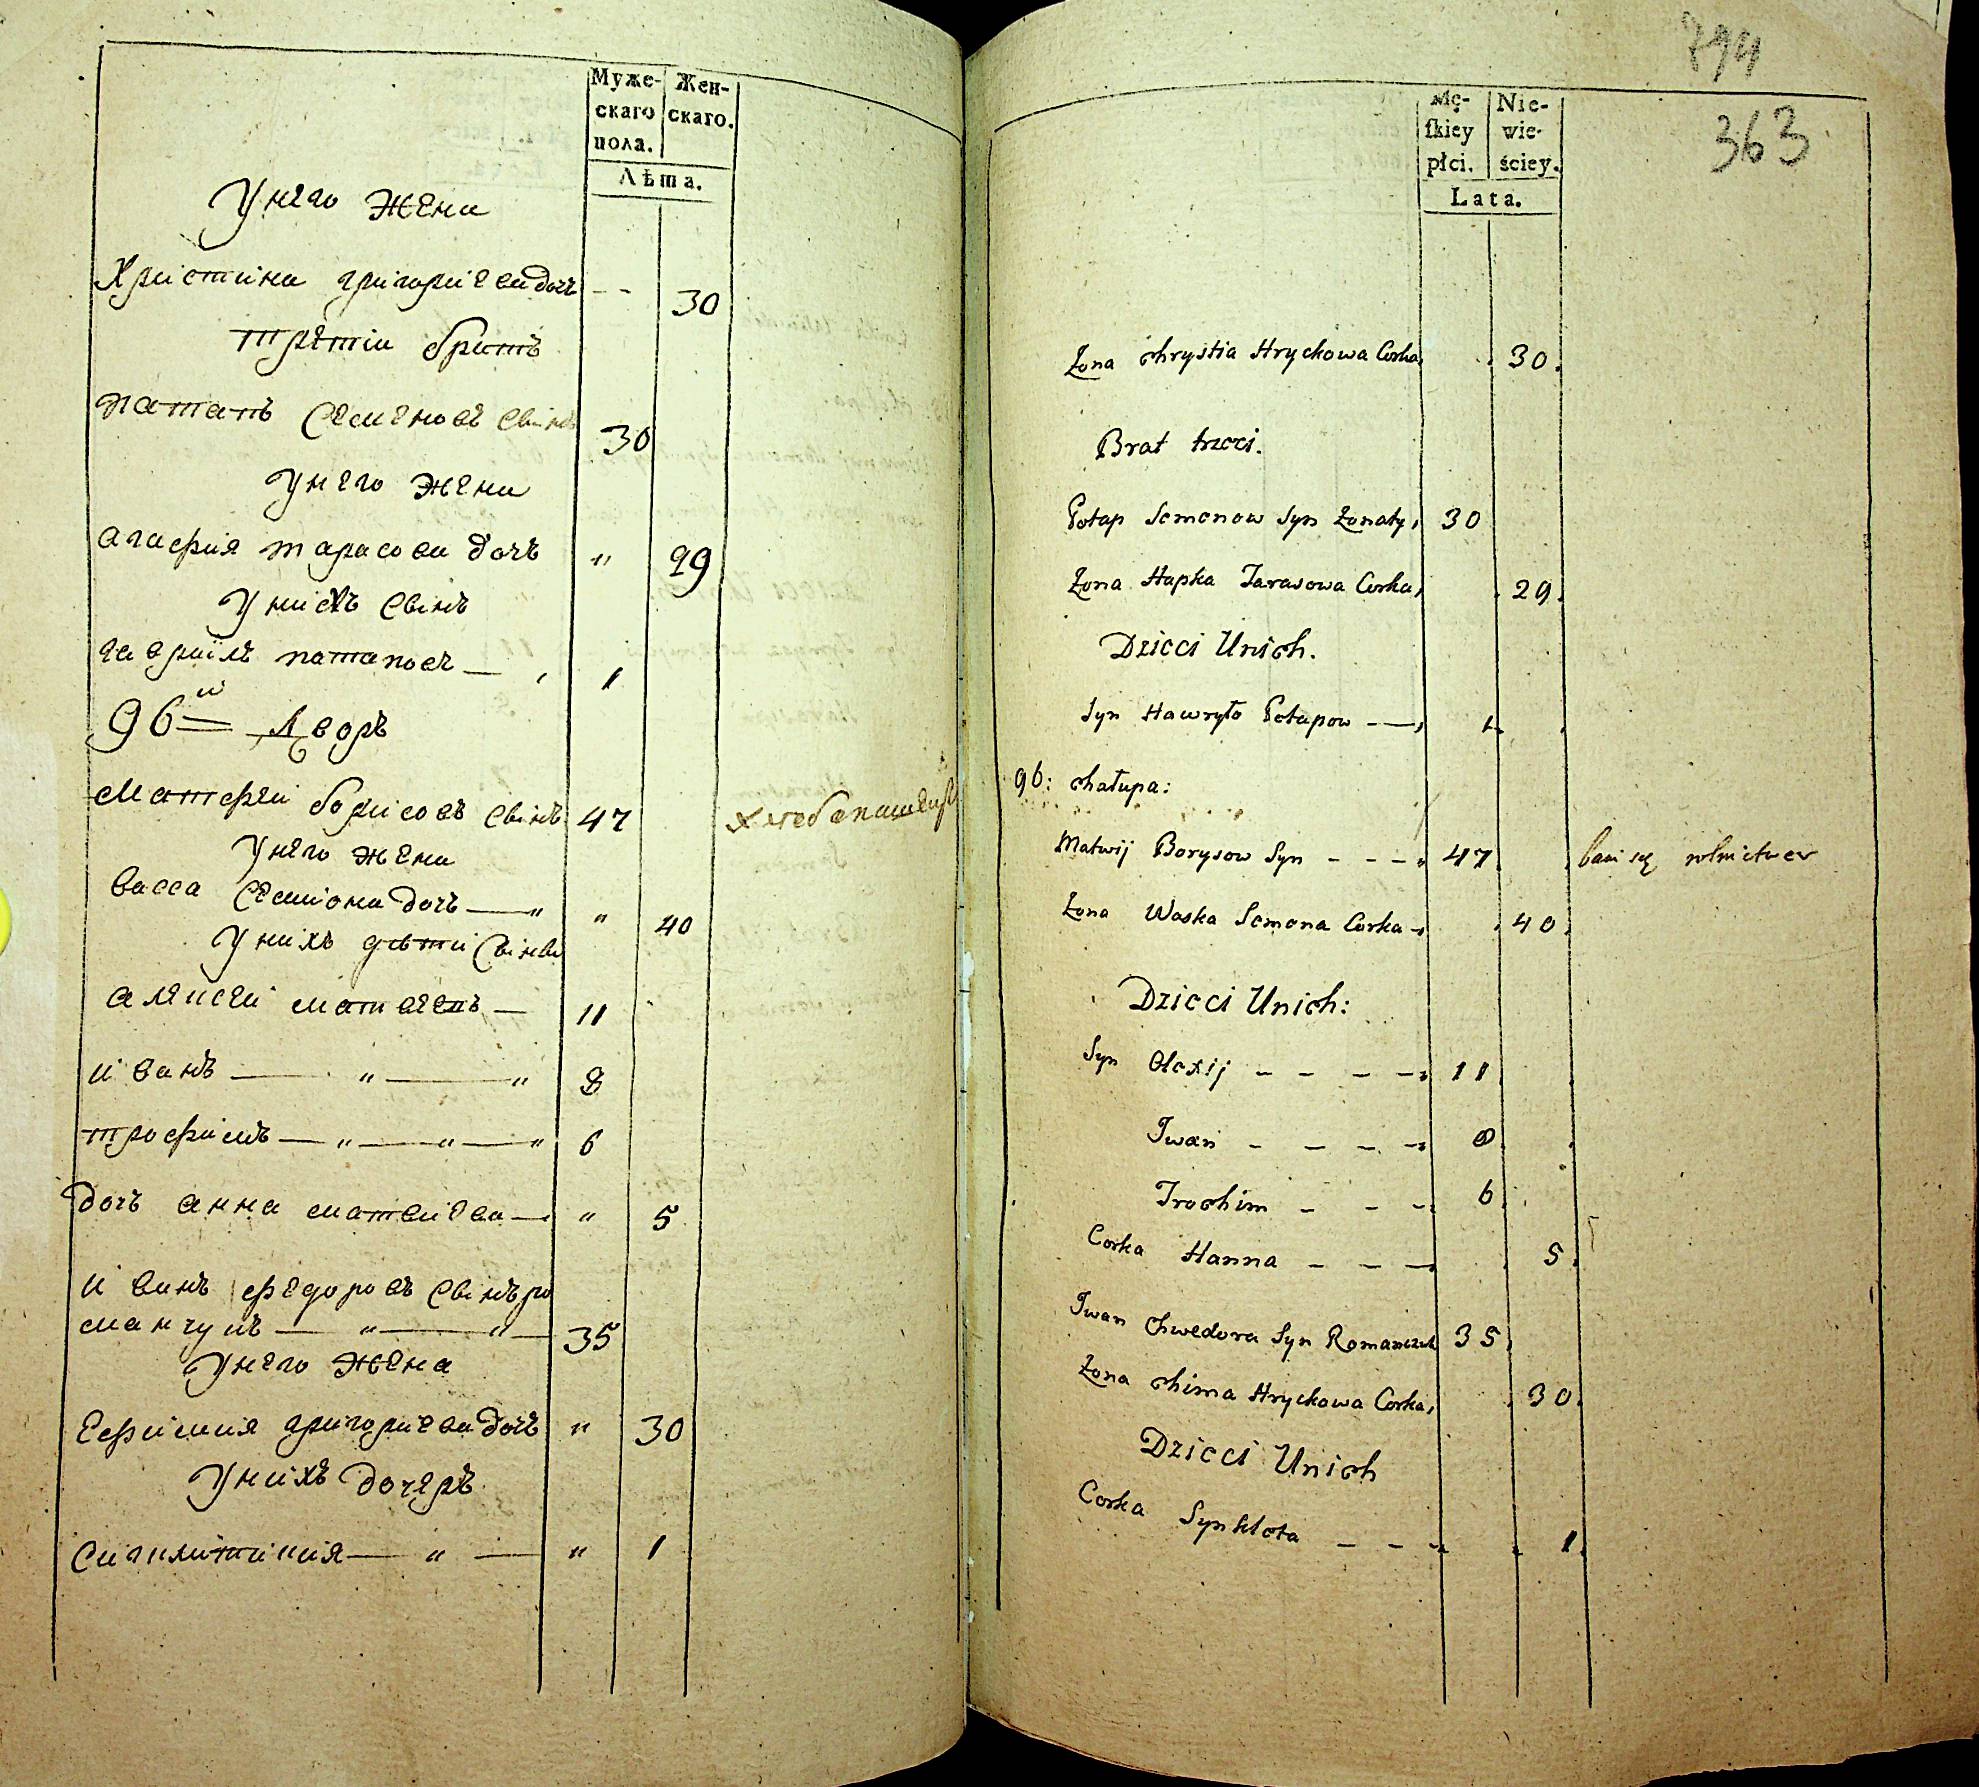 Муже-
скаго
пола.
Жен-
скаго.
Лѣта.
Унего жена
Христина григориева дочь -- 30
третiи братъ
патапъ Семеновъ Синъ 30
Унего жена
агафия тарасова дочь " 29
Унихъ Синъ
гаврiилъ патаповъ — , 1
96й Дворъ
Матфеи борисовъ Синъ 47
Унего жена
васса Семиона дочь — " " 40
Унихъ дѣти Сини
алексеи матвеевъ — 11
иванъ — " — " 8
трофимъ — " — " — " 6
дочь анна матвиева — " 5
иванъ федоровъ Синъ ро
манчукъ — " — " — 35
Унего жена
Ефимия григориева дочь " 30
Унихъ дочеръ
Сигклитикия — " — " 1
794
363
Mę-
ſkiey
płci.
Nie-
wie-
ściey.
Lata.
Żona Chrystia Hryckowa Corka, 30.
Brat trzeci.
Potap Semenow Syn Żonaty, 30
Żona Hapka Tarasowa Corka, 29.
Dzieci Unich.
Syn Hawryło Potapow —, 1.
96: Chałupa:
Matwij Borysow Syn - - - 47 bawi się
Żona Waska Semena Corka - 40.
Dzieci Unich:
Syn Olexij - - - - 11
Iwan - - - - 8
Trochim - - - 6
Corka Hanna - - - 5.
Iwan Chwedora Syn Romanczuk 35,
Żona Chima Hryckowa Corka, 30.
Dzieci Unich
Corka Synkleta - - - 1.